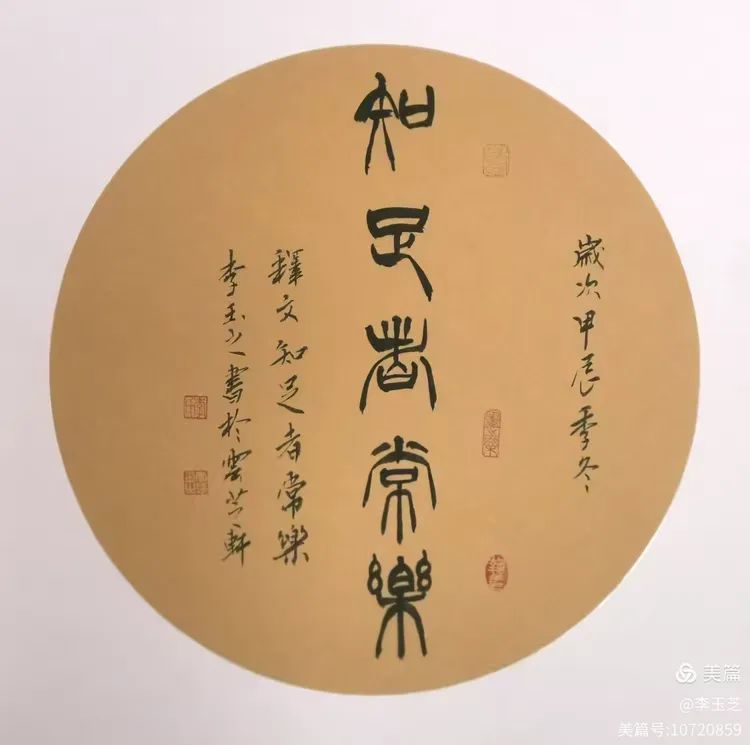 歲次甲辰季冬
知足者常樂
釋文知足者常樂
李玉芝書於雲芝軒
美篇
@李玉芝
美篇号:10720859